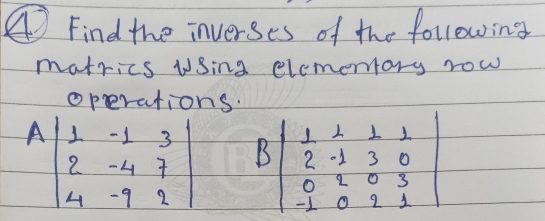 ④ Find the inverses of the following
matrics using elementary row
operations.
A | 1 -1 3 | B | 1 1 1 1 |
| 2 -4 7 | | 2 -1 3 0 |
| 4 -9 2 | | 0 2 0 3 |
| -1 0 2 1 |